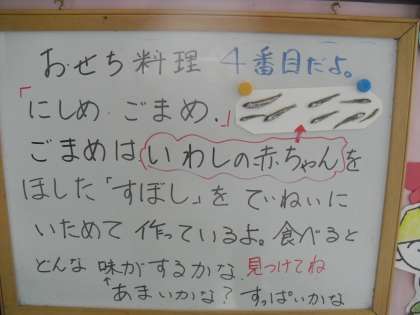 おせち料理 4番目だよ。
「にしめ ごまめ.」
ごまめは いわしの赤ちゃんを
ほした「すぼし」を ていねいに
いためて 作っているよ。食べると
どんな 味がするかな 見つけてね
↑あまいかな? すっぱいかな